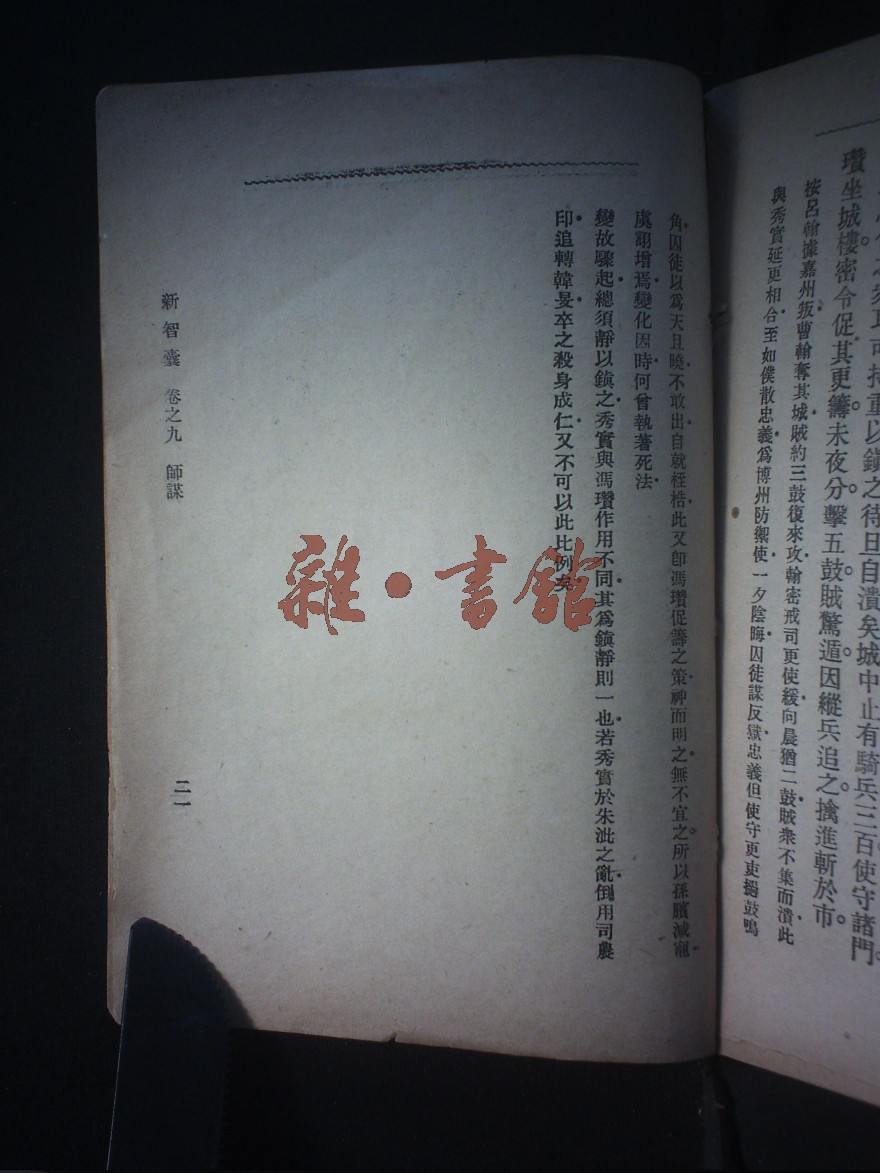 持重以鎮之待旦自潰矣城中止有騎兵三百使守諸門。
瓚坐城樓密令促其更籌未夜分擊五鼓賊驚遁因縱兵追之擒進斬於市。
按呂翰據嘉州叛曹翰奪其城賊約三鼓復來攻翰密戒司更使緩向晨猶二鼓賊衆不集而潰此
與秀實延更相合至如僕散忠義爲博州防禦使一夕陰晦囚徒謀反獄忠義但使守更吏撾鼓鳴
角囚徒以爲天且曉不敢出自就桎梏此又卽馮瓚促籌之策神而明之無不宜之所以孫臏減竈
虞詡增焉變化因時何曾執著死法
變故驟起總須靜以鎮之秀實與馮瓚作用不同其爲鎮靜則一也若秀實於朱泚之亂倒用司農
印追轉韓旻卒之殺身成仁又不可以此比例矣
新智囊 卷之九 師謀
二一
雜·書館